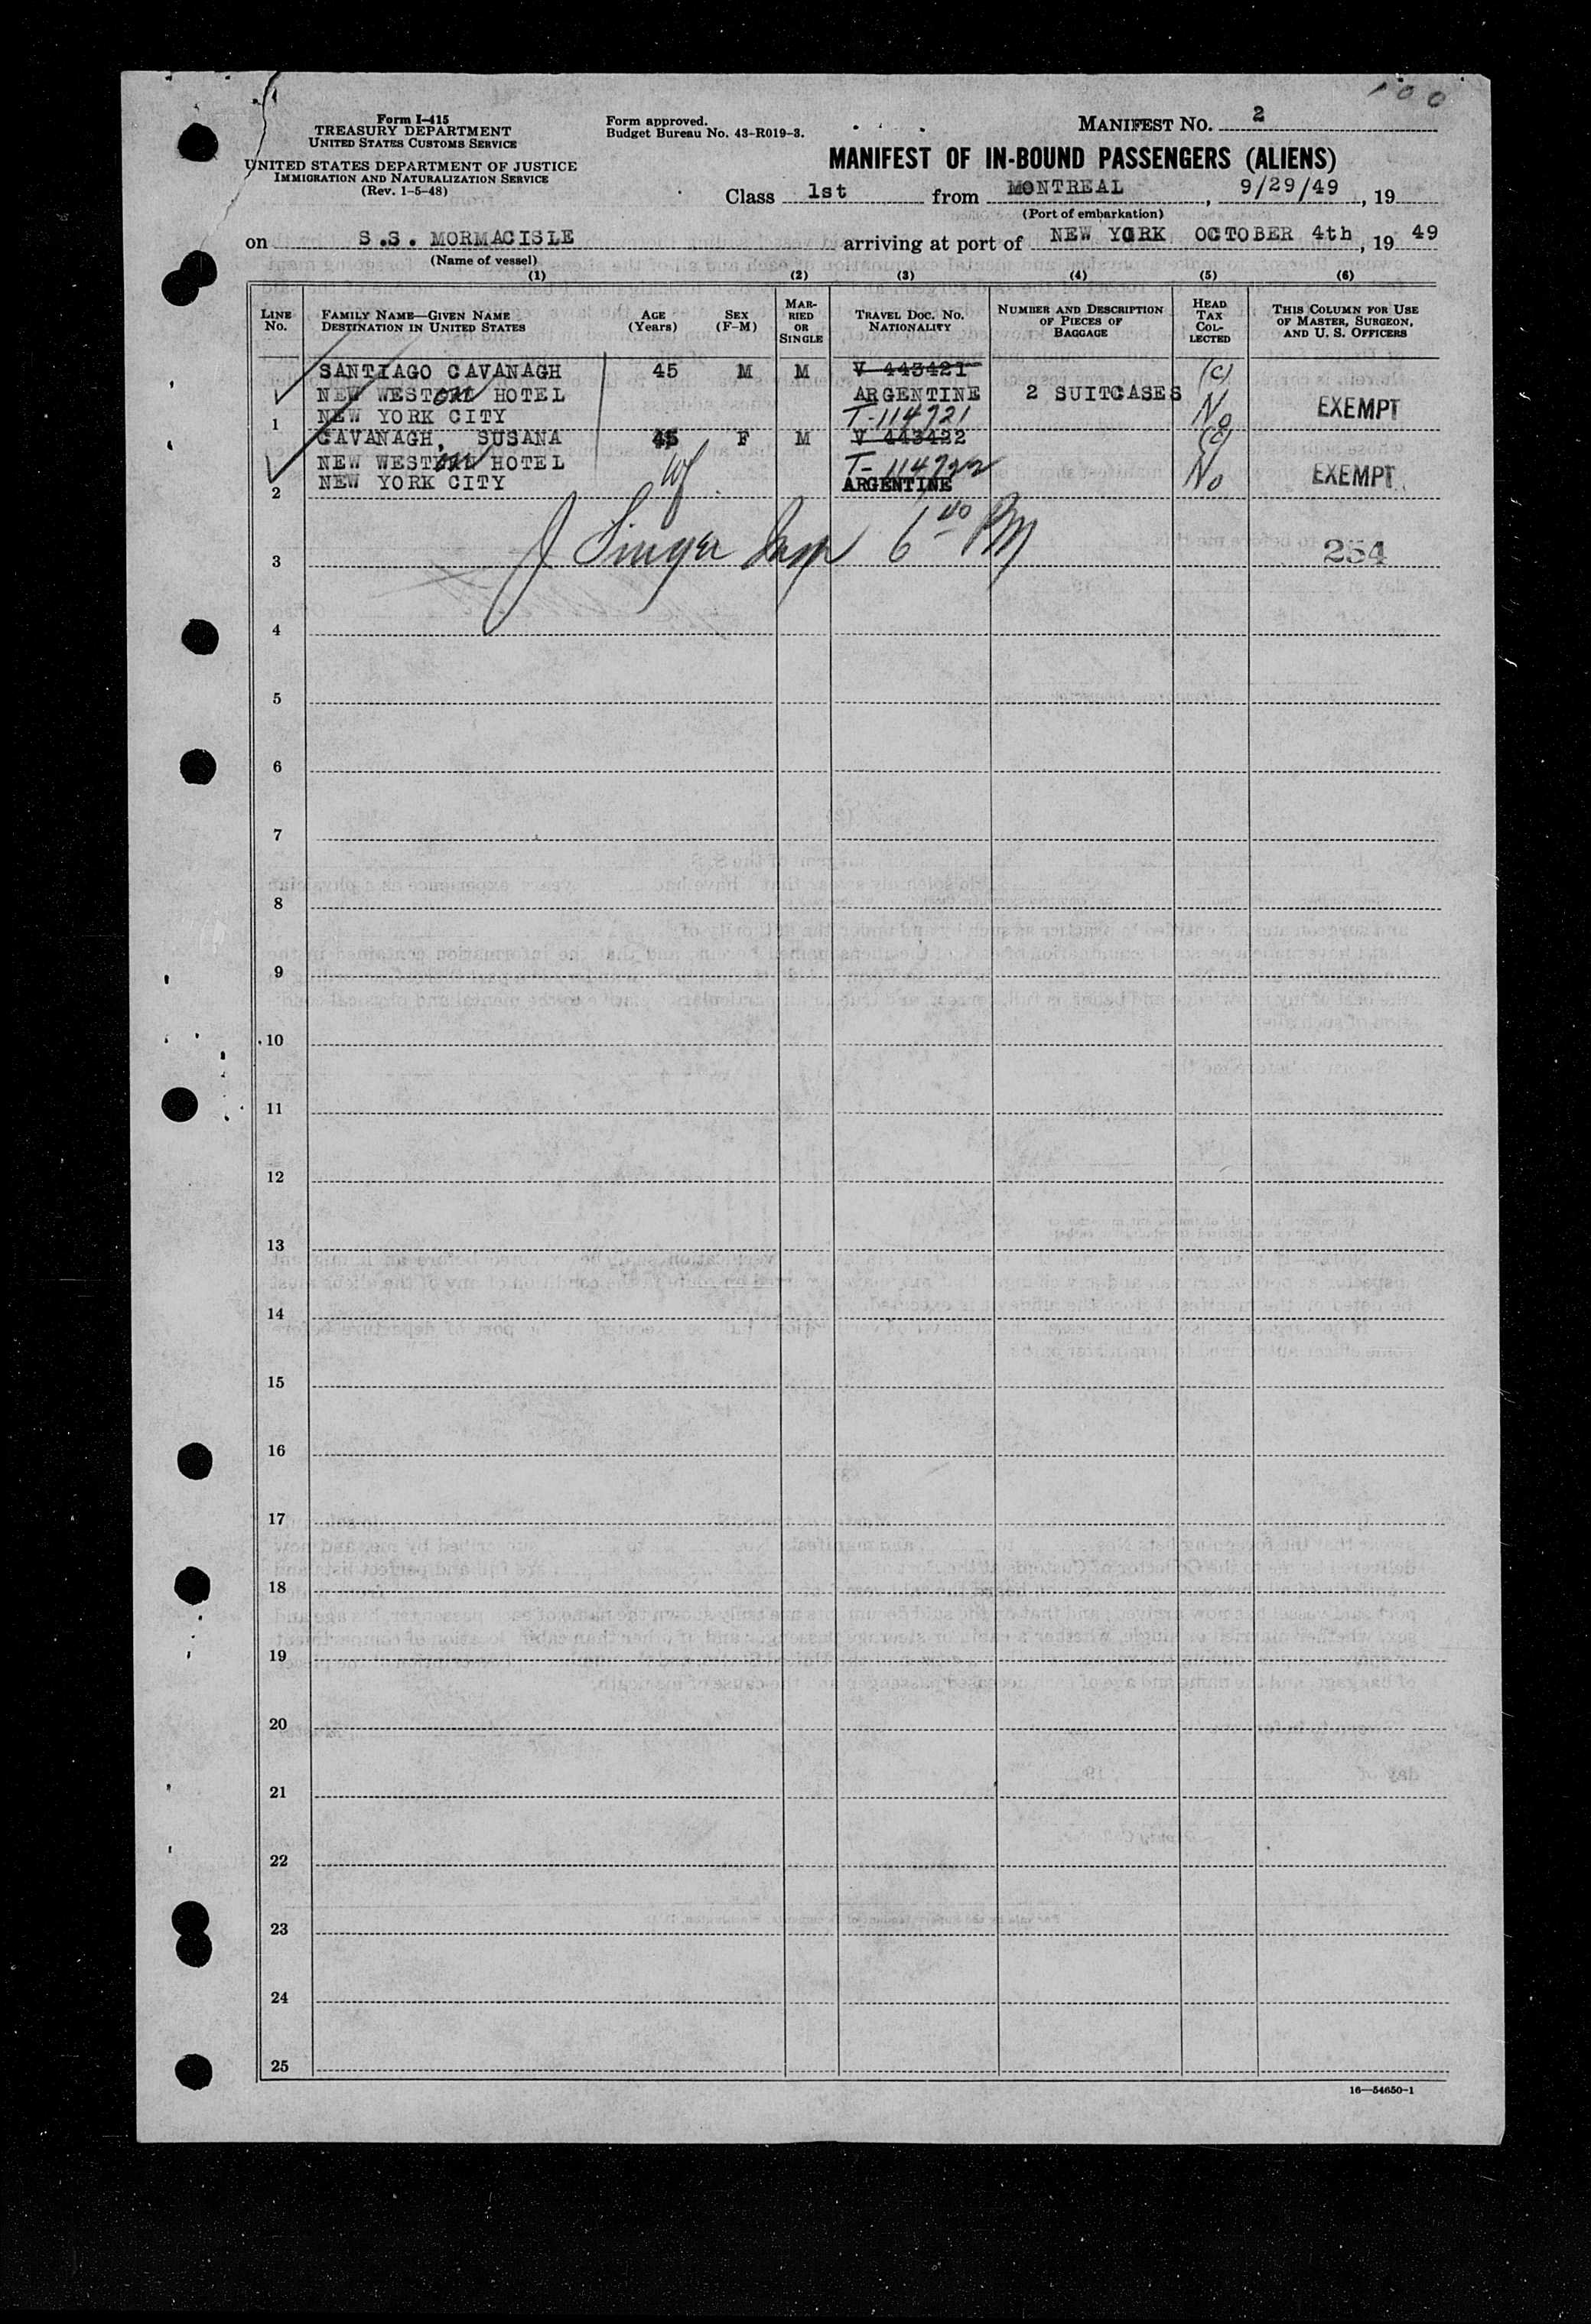 Form I-415
TREASURY DEPARTMENT
UNITED STATES CUSTOMS SERVICE
UNITED STATES DEPARTMENT OF JUSTICE
IMMIGRATION AND NATURALIZATION SERVICE
(Rev. 1-5-48)
Form approved.
Budget Bureau No. 43-R019-3.
MANIFEST NO. 2
MANIFEST OF IN-BOUND PASSENGERS (ALIENS)
Class 1st from MONTREAL, 9/29/49, 19
(Port of embarkation)
on S.S. MORMACISLE arriving at port of NEW YORK OCTOBER 4th, 19 49
(Name of vessel)
(1) (2) (3) (4) (5) (6)
LINE No. FAMILY NAME—GIVEN NAME DESTINATION IN UNITED STATES AGE (Years) SEX (F-M) MARRIED OR SINGLE TRAVEL DOC. NO. NATIONALITY NUMBER AND DESCRIPTION OF PIECES OF BAGGAGE HEAD TAX COLLECTED THIS COLUMN FOR USE OF MASTER, SURGEON, AND U. S. OFFICERS
SANTIAGO CAVANAGH 45 M M V 443421 (c)
NEW WESTON HOTEL ARGENTINE 2 SUITCASES No EXEMPT
1 NEW YORK CITY T-114721
CAVANAGH, SUSANA 45 F M V 443422 (c)
NEW WESTON HOTEL Wf T-114722 No EXEMPT
2 NEW YORK CITY ARGENTINE
J Singer Insp 6 40 PM
3 254
4
5
6
7
8
9
10
11
12
13
14
15
16
17
18
19
20
21
22
23
24
25
16—54650-1